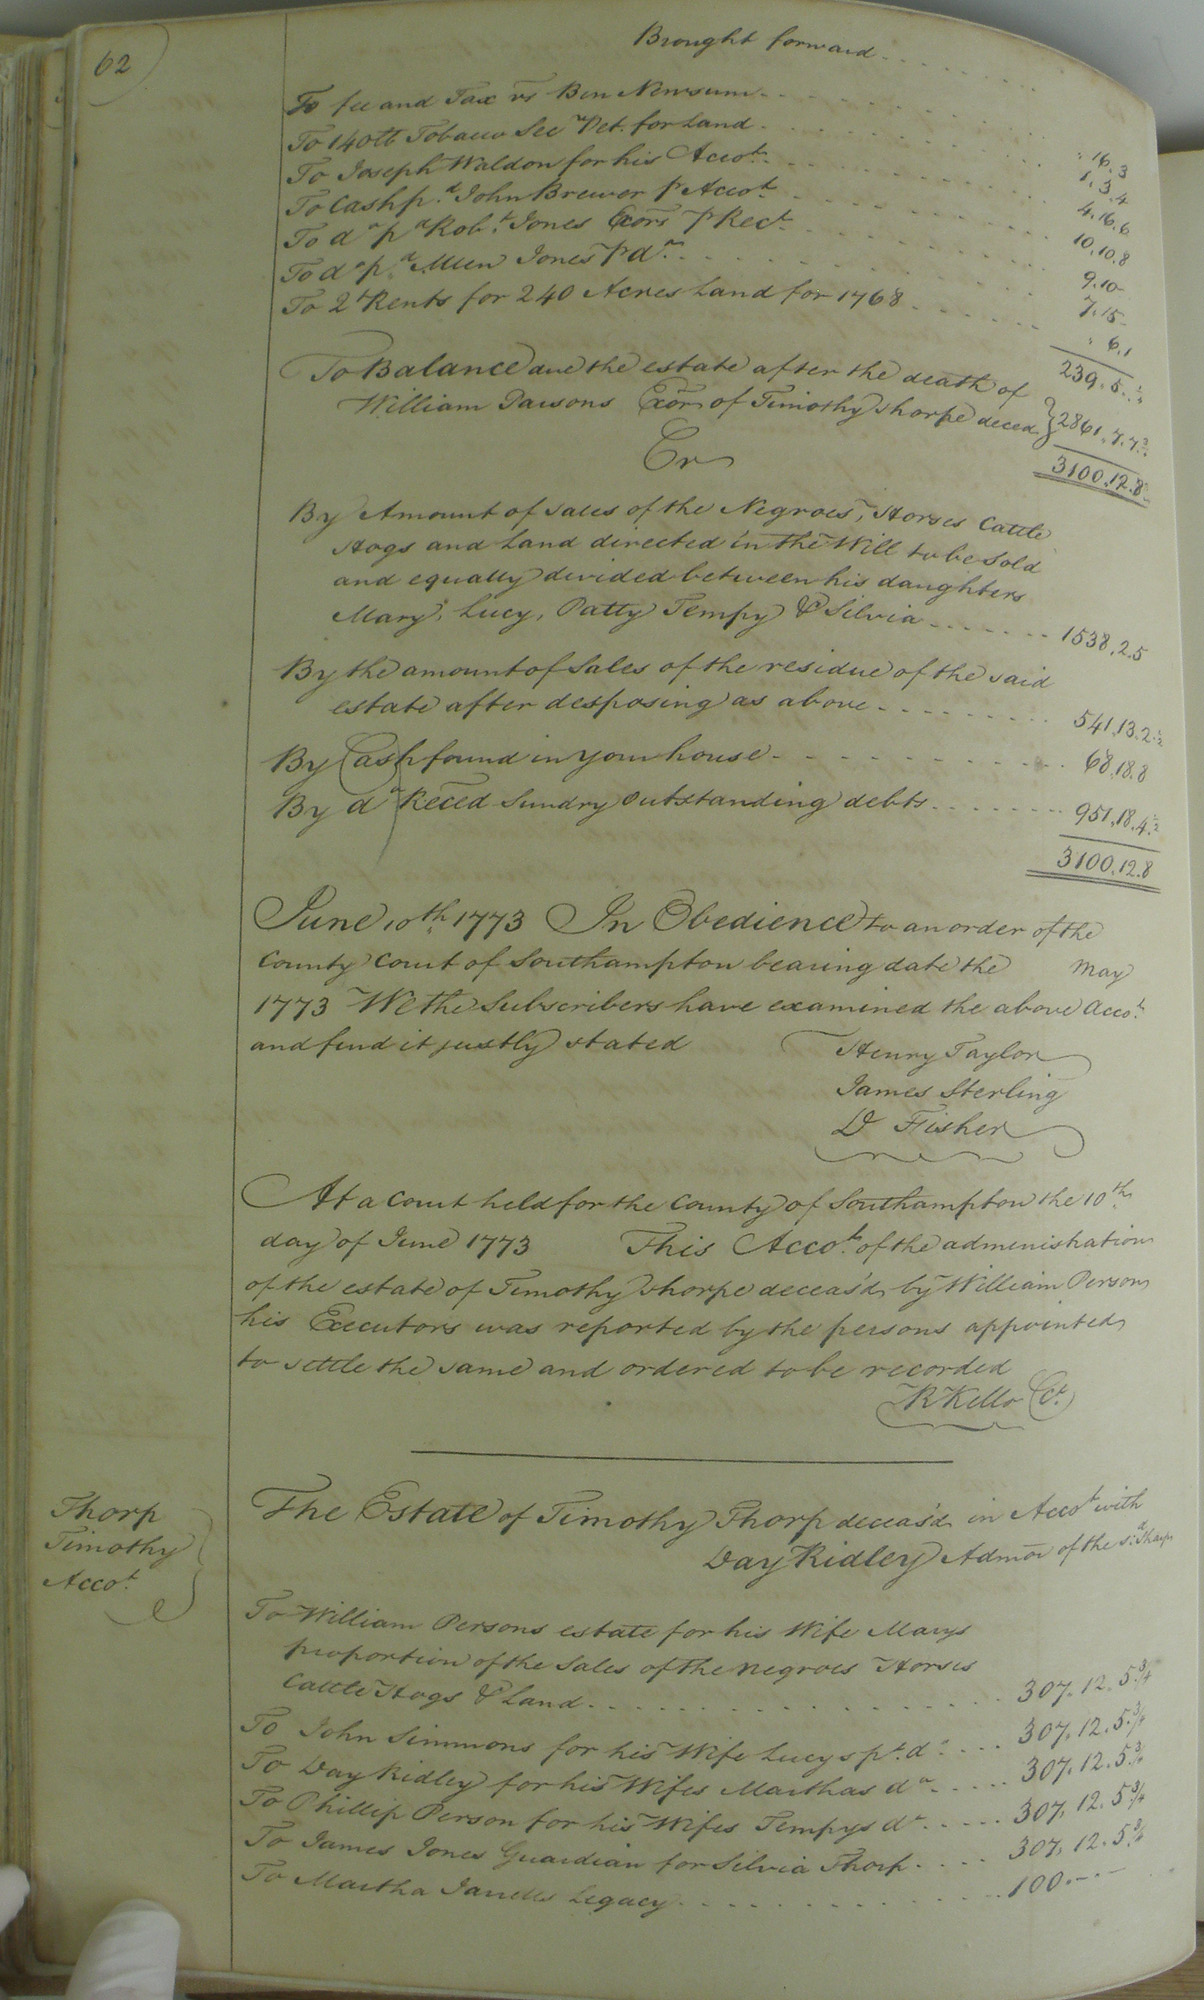 62
Brought forward
To fee and Tax vs Ben Newsum " 16.3
To 140 lb Tobacco See Det. for Land 1.3.4
To Joseph Waldon for his Accot. 4.16.6
To Cash pd. John Brewer pr Accot 10.10.8
To do pd Robt. Jones Exors pr Rect. 9.10
To do pd Allen Jones pr do. 7.15
To Qt Rents for 240 Acres Land for 1768 " 6.1
239.5..½
To Balance due the estate after the death of
William Parsons Exor of Timothy Thorpe deced } 2861.7.7½
3100.12.8
Cr
By Amount of sales of the Negroes, Horses Cattle
Hogs and Land directed in the Will to be Sold
and equally divided between his daughters
Mary, Lucy, Patty Tempy & Silvia 1538.2.5
By the amount of Sales of the residue of the said
estate after desposing as above 541.13.2½
By Cash found in your house 68.18.8
By do Receed Sundry outstanding debts 951.18.4½
3100.12.8
June 10th 1773 In Obedience to an order of the
County Court of Southampton bearing date the May
1773 We the Subscribers have examined the above Accot.
and find it justly stated Henry Taylor
James Sterling
D Fisher
At a Court held for the County of Southampton the 10th
day of June 1773 This Accot. of the administration
of the estate of Timothy Thorpe deceas'd by William Person
his Executors was reported by the persons appointed
to settle the same and ordered to be recorded
R Kello Ct.
Thorp
Timothy
Accot.
The Estate of Timothy Thorp deceas'd in Accot with
Day Ridley Admor of the sd. Tharp
To William Persons estate for his Wife Marys
proportion of the Sales of the Negroes Horses
Cattle Hogs & Land 307.12.5¾
To John Simmons for his Wife Lucys pt. do 307.12.5¾
To Day Ridley for his Wifes Marthas do 307.12.5¾
To Phillip Person for his Wifes Tempys do 307.12.5¾
To James Jones Guardian for Silvia Thorp 307.12.5¾
To Martha Jarrells Legacy 100.-.-